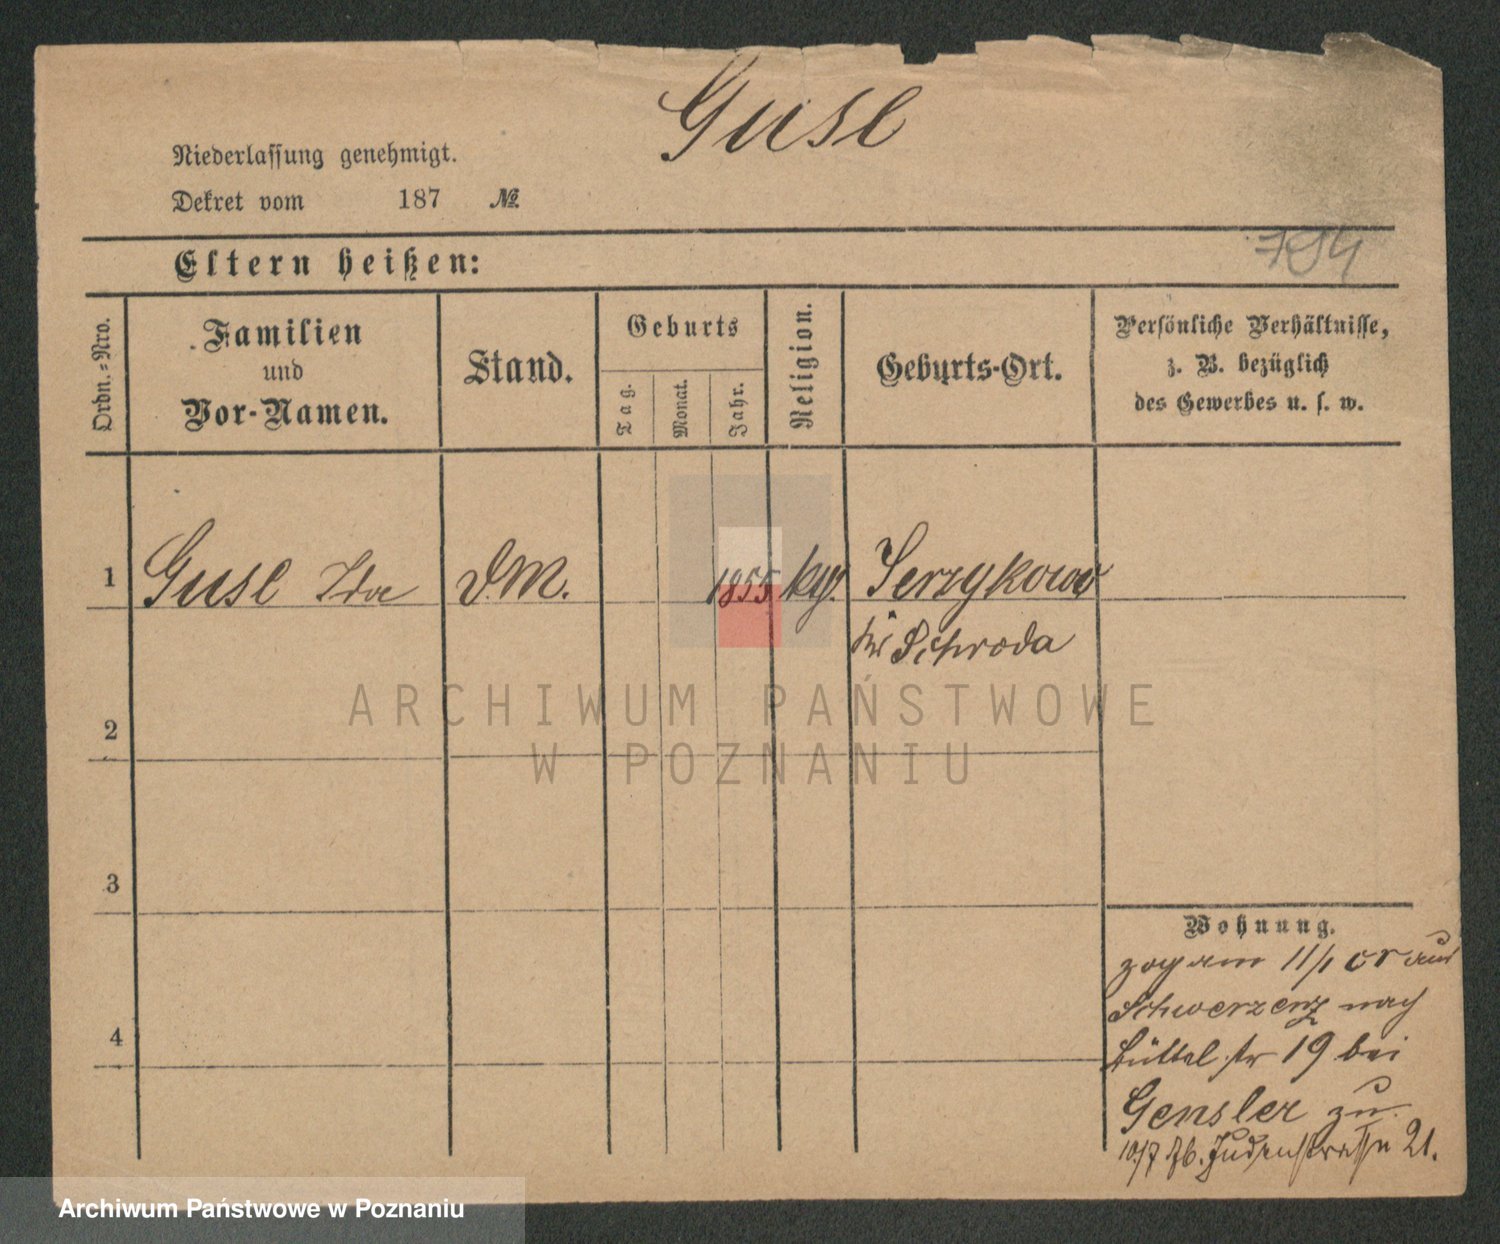 Gusl
Niederlassung genehmigt.
Dekret vom 187 №
794
Eltern heißen:
Ordn.-Nro.
Familien
und
Vor-Namen.
Stand.
Geburts
Tag.
Monat.
Jahr.
Religion.
Geburts-Ort.
Persönliche Verhältnisse,
z. B. bezüglich
des Gewerbes u. s. w.
1 Gusl Ida DM. 1855 Jerzykowo
Schroda
2
3
4
Wohnung.
zog am 11/1 cr aus
Schwersenz nach
Büttelstr 19 bei
Gensler zu
10/7 Judenstrasse 21.
ARCHIWUM PAŃSTWOWE
W POZNANIU
Archiwum Państwowe w Poznaniu